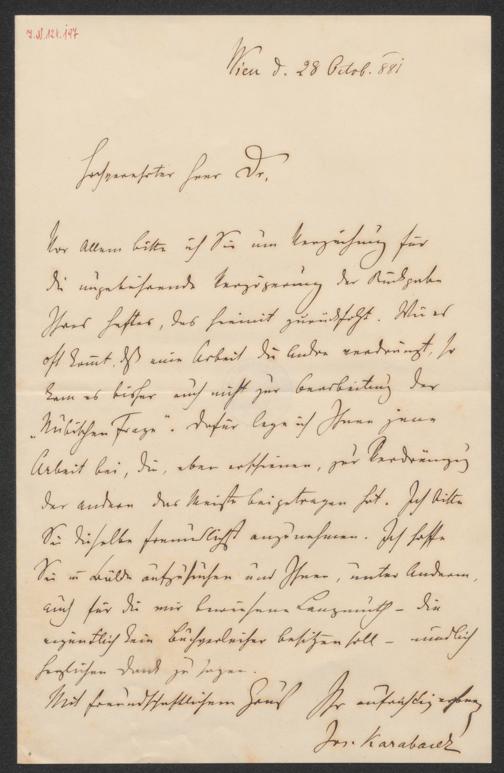 J.N. 121.197
Wien d. 28 Octob. 881
Hochverehrter Herr Dr,
Vor Allem bitte ich Sie um Verzeihung für
die ungebührende Verzögerung der Rückgabe
Ihres Heftes, das hiemit zurückfolgt. Wie es
oft kommt, daß eine Arbeit die Andre verdrängt, so
kam es bisher auch nicht zur Bearbeitung der
„Nubischen Frage“. Dafür lege ich Ihnen jene
Arbeit bei, die, eben erschienen, zur Verdrängung
der andern das Meiste beigetragen hat. Ich bitte
Sie dieselbe freundlichst anzunehmen. Ich hoffe
Sie in Bälde aufzusuchen und Ihnen, unter Anderm,
auch für die mir bewiesene Langmuth – die
eigentlich kein Bücherleiher besitzen soll – mündlich
herzlichen Dank zu sagen.
Mit freundschaftlichem Gruß Ihr aufrichtig ergebener
Jos. Karabacek